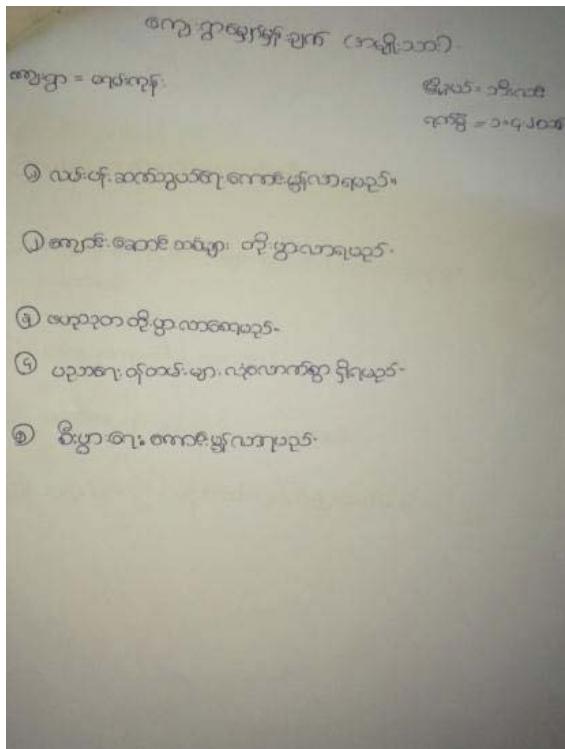 ကျေးရွာမျှော်မှန်းချက် (အမျိုးသား)
ကျေးရွာ = တမ်းကုန်း
မြို့နယ် = သီးလင်း
ရက်စွဲ = ၁.၄.၂၀၁၆
၁ လမ်းပန်းဆက်သွယ်ရေး ကောင်းမွန်လာရမည်။
၂ ကျောင်းဆောင်သစ်များ တိုးပွားလာရမည်.
၃ ဗဟုသုတ တိုးပွားလာစေရမည်.
၄ ပညာရေး ဝန်ထမ်းများ လုံလောက်စွာ ရှိရမည်.
၅ စီးပွားရေး ကောင်းမွန်လာရမည်.